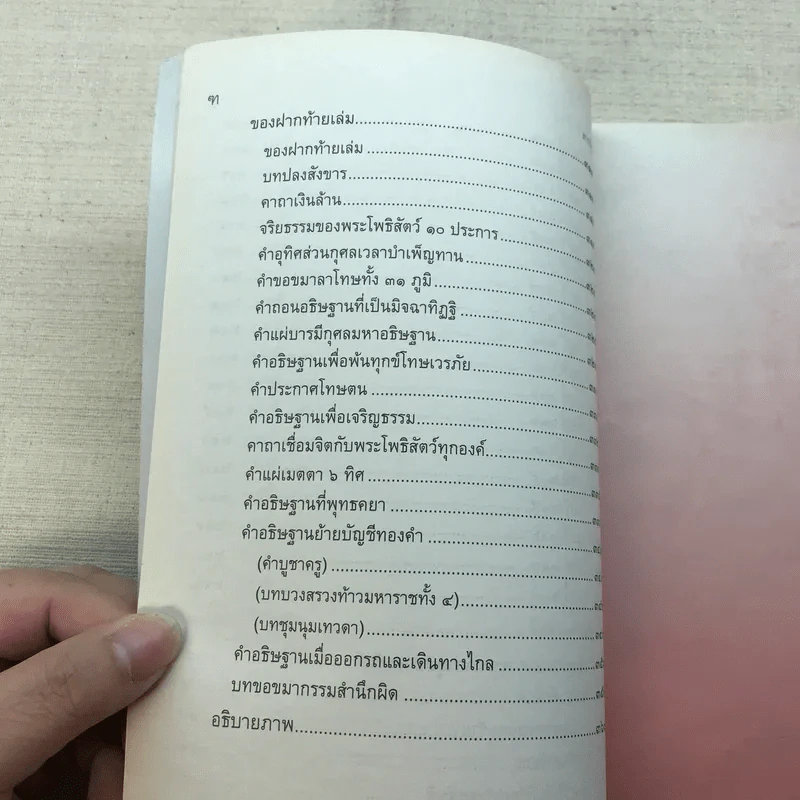 ฑ
ของฝากท้ายเล่ม
ของฝากท้ายเล่ม
บทปลงสังขาร
คาถาเงินล้าน
จริยธรรมของพระโพธิสัตว์ ๑๐ ประการ
คำอุทิศส่วนกุศลเวลาบำเพ็ญทาน
คำขอขมาลาโทษทั้ง ๓๑ ภูมิ
คำถอนอธิษฐานที่เป็นมิจฉาทิฏฐิ
คำแผ่บารมีกุศลมหาอธิษฐาน
คำอธิษฐานเพื่อพ้นทุกข์โทษเวรภัย
คำประกาศโทษตน
คำอธิษฐานเพื่อเจริญธรรม
คาถาเชื่อมจิตกับพระโพธิสัตว์ทุกองค์
คำแผ่เมตตา ๖ ทิศ
คำอธิษฐานที่พุทธคยา
คำอธิษฐานย้ายบัญชีทองคำ
(คำบูชาครู)
(บทบวงสรวงท้าวมหาราชทั้ง ๔)
(บทชุมนุมเทวดา)
คำอธิษฐานเมื่อออกรถและเดินทางไกล
บทขอขมากรรมสำนึกผิด
อธิบายภาพ